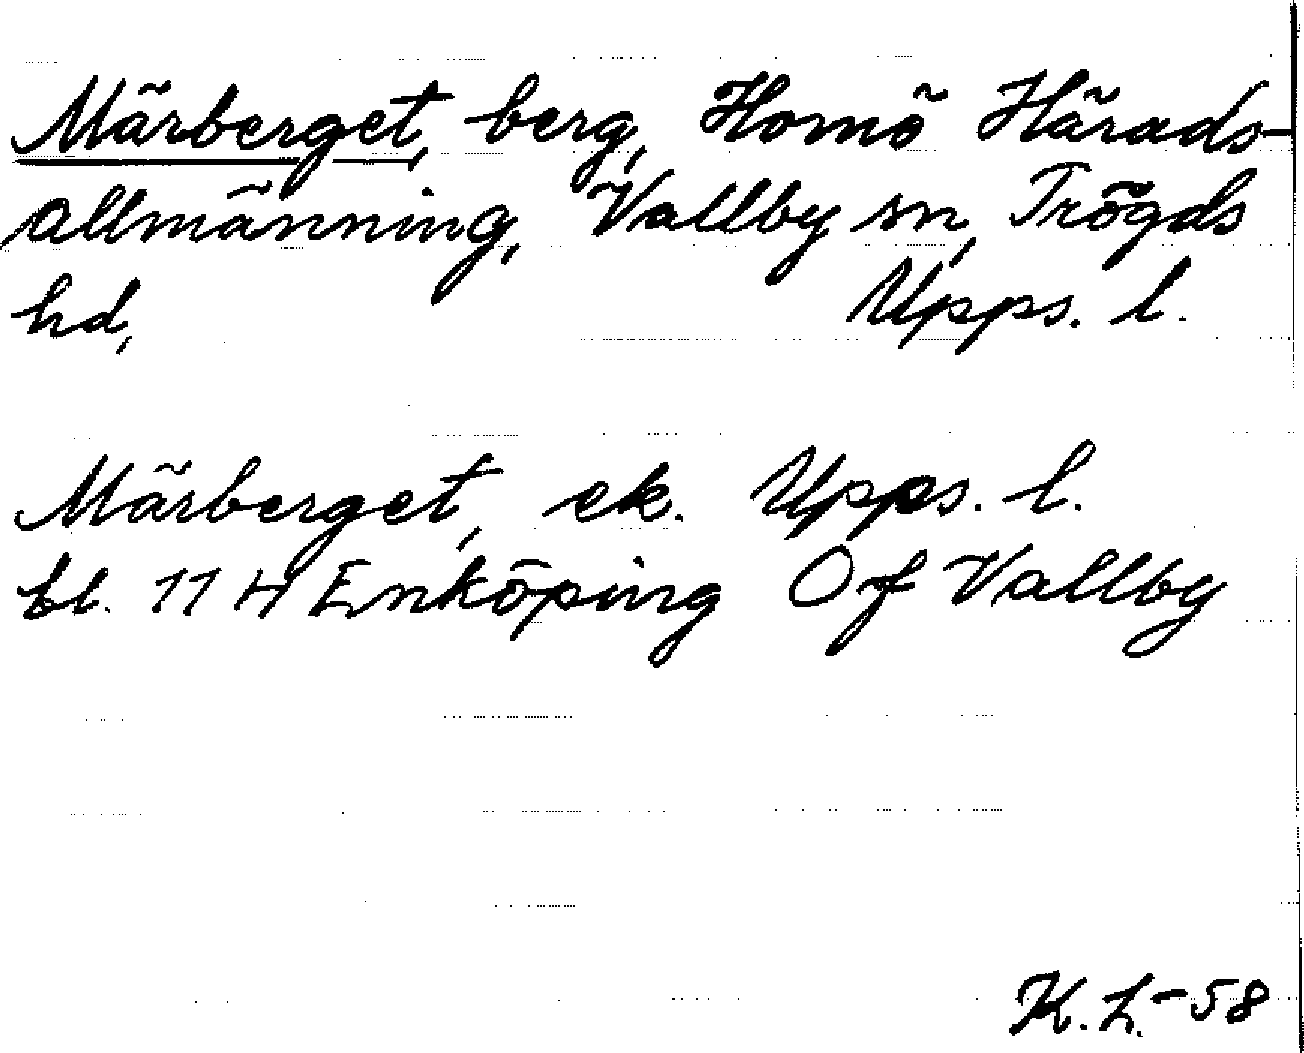 Märberget, berg, Homö Härads-
allmänning, Vallby sn, Trögds
hd, Upps. l.
Märberget, ek. Upps. l.
bl. 11 H Enköping Of Vallby
K. L. -58